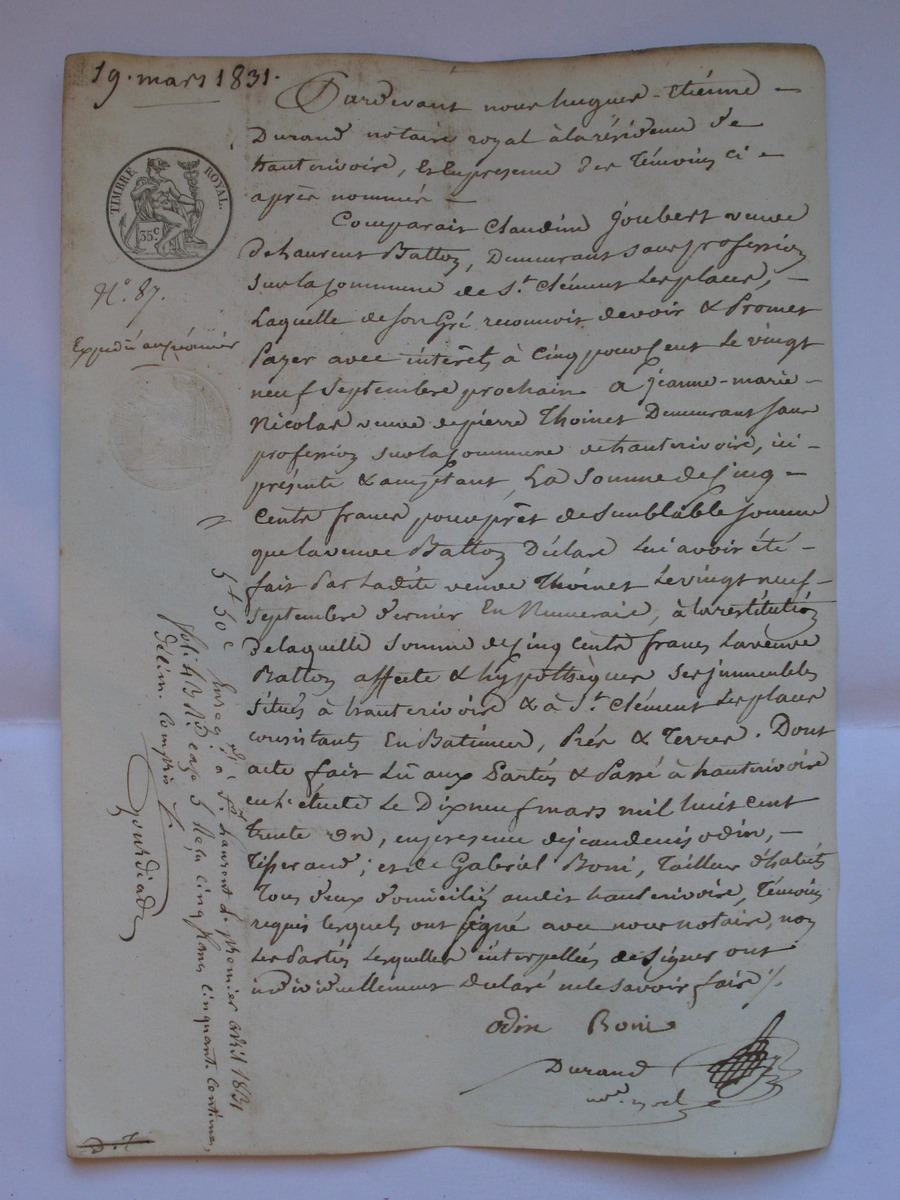 19. mars 1831.
Pardevant nous hugues-étienne
Durand notaire royal à la résidence de
hauterivoire, et En présence des Témoins ci-
après nommés
Comparait Claudine Joubert veuve
de Laurent Batton, Demeurant sans profession
sur la Commune de St. Clément Les places,
Laquelle de son Gré reconnoit devoir & Promet
Payer avec intérêt à Cinq pour Cent Le vingt
neuf Septembre prochain a Jeanne-marie
Nicolas veuve de pierre Thoinet Demeurant sans
profession sur la Commune de hauterivoire, ici
présente & acceptant, La Somme de Cinq
Cents francs pour prêt de Semblable Somme
que la veuve Batton Déclare Lui avoir été
fait Par Ladite veuve Thoinet Le vingt neuf
Septembre dernier En Numeraire, à la restitution
de laquelle Somme de Cinq Cents francs La veuve
Batton affecte & hypothèque Ses immeubles
Situés à hauterivoire & à St. Clément Les places
consistants En Batiment, Prés & Terres. Dont
acte fait Lû aux Parties & Passé à hauterivoire
en L'étude Le Dix neuf mars mil huit cent
trente un, en présence de jean denis odin,
Tisserand; et de Gabriel Boni, Tailleur d'habits
Tous deux domiciliés audit hauterivoire, Témoins
requis lesquels ont Signé avec nous notaire, non
Les Parties Lesquelles interpellées de Signer ont
individuellement Déclaré ne le Savoir faire
odin Boni
Durand
TIMBRE ROYAL.
35 c
No. 87.
Expédié au créancier
5 f 50 c
Enreg. à St. Laurent le premier avril 1831
fol. 43 Rd case 5 Reçu cinq francs cinquante centimes,
décime compris